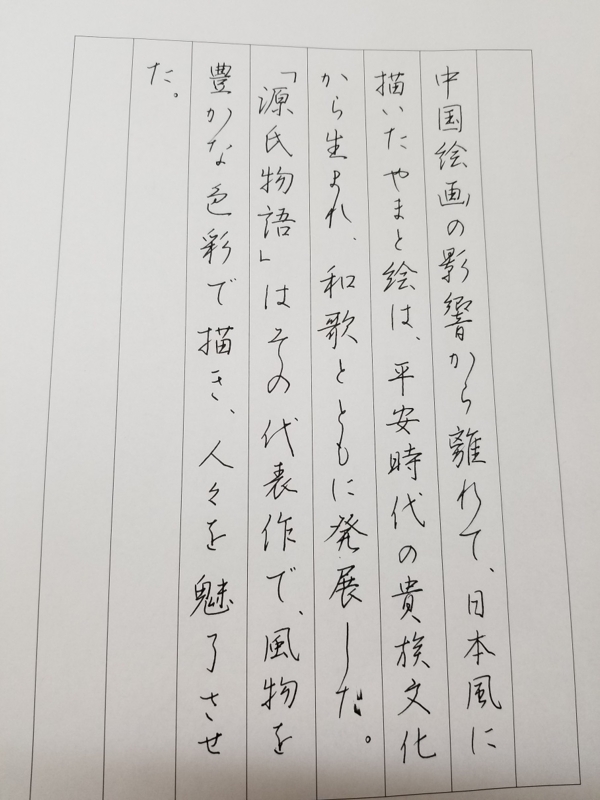 中国絵画の影響から離れて、日本風に
描いたやまと絵は、平安時代の貴族文化
から生まれ、和歌とともに発展した。
「源氏物語」はその代表作で、風物を
豊かな色彩で描き、人々を魅了させ
た。